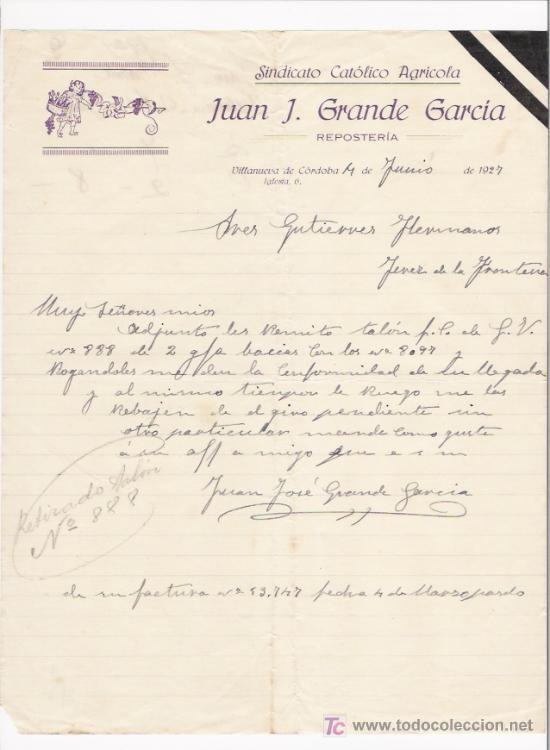 Sindicato Católico Agricola
Juan J. Grande Garcia
REPOSTERÍA
Villanueva de Córdoba 4 de Junio de 1927
Iglesia, 6.
Sres Gutierres Hermanos
Jerez de la Frontera
Muy Señores mios
Adjunto les Remito talón f.c. de G.V.
nº 888 de 2 gfa bacias Con los nº 8097 y
Rogandoles me den la Conformidad de Su llegada
y al mismo tiempo le Ruego me las
Rebajen de el giro pendiente sin
otro particular mande como guste
á su aff amigo que e s m
Juan José Grande Garcia
Retirado talón
Nº 888
de su factura nº 83.747 fecha 4 de Marzo pasdo
TC
www.todocoleccion.net